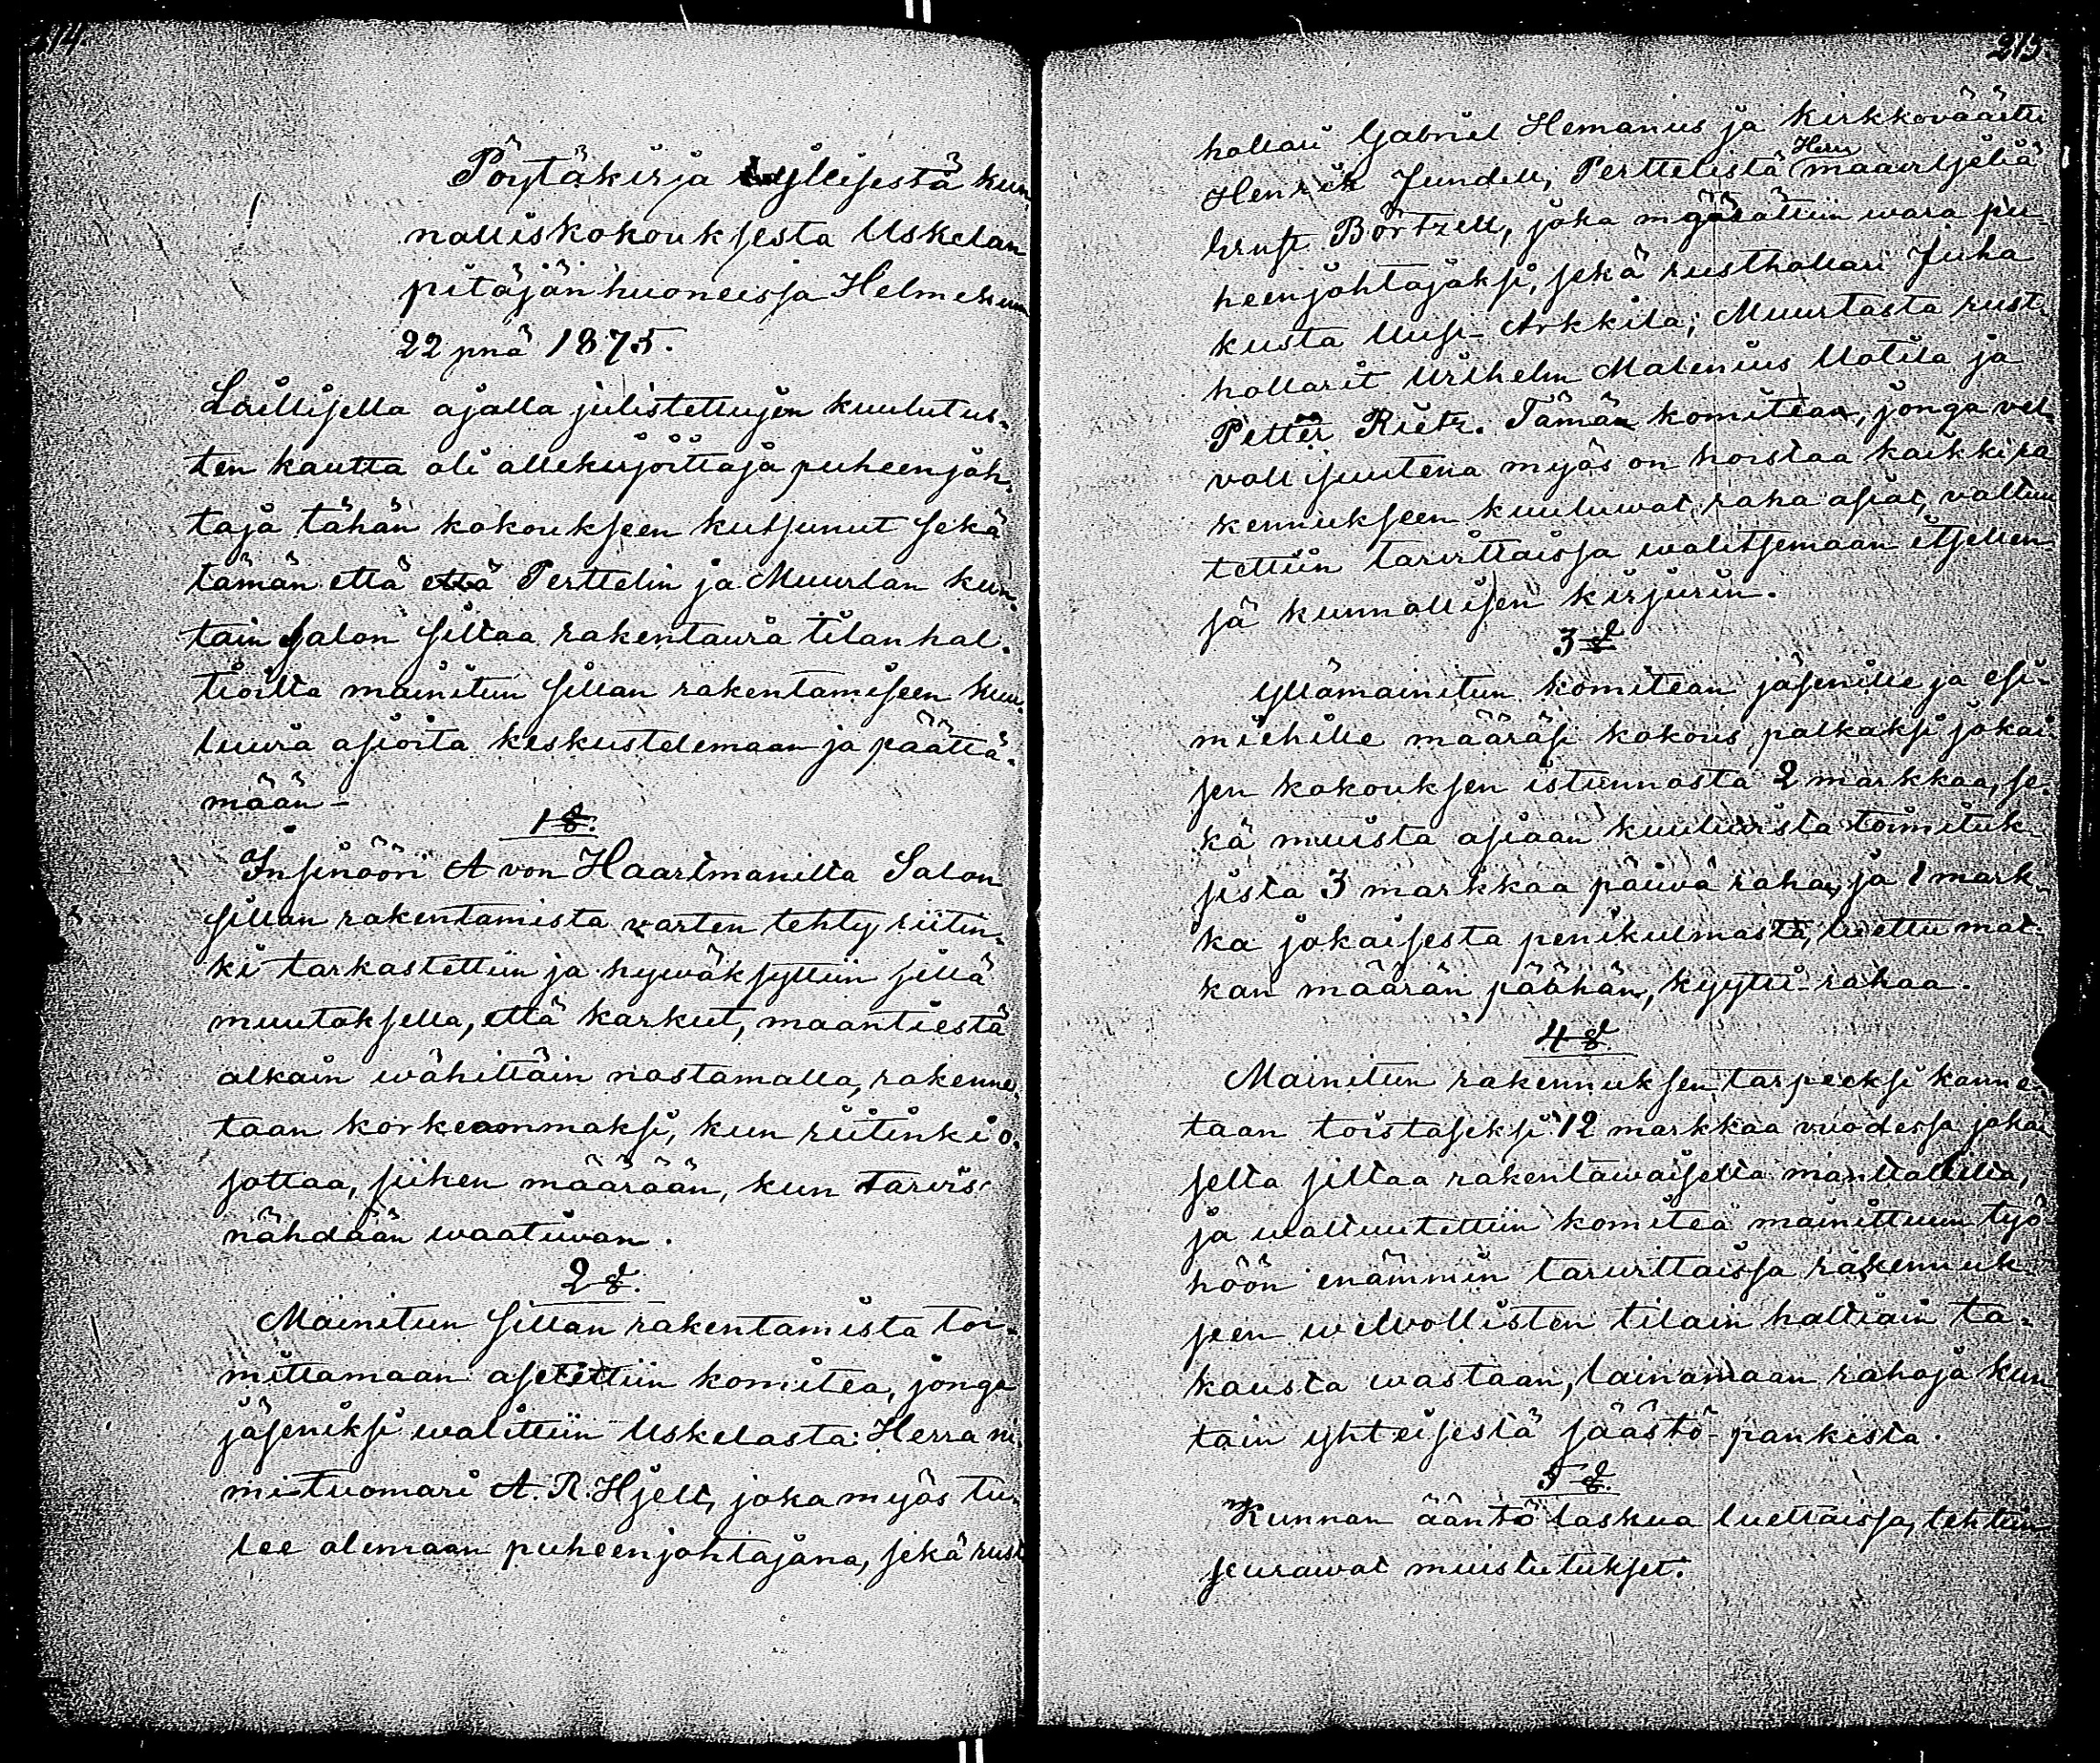 Pöytäkirja yllisestä kun
nalliskokouksesta Uskelan
pitäjänhuoneissa Helmikuun
22 pnä 1875.
Laillisella ajalla julistettujen kuulutus-
ten kautta oli allekirjoittaja puheenjoh-
taja tähän kokoukseen kutsunut sekä
tämän että että Perttelin ja Muurlan kun-
tain Salon siltaa rakentavia tilanhal-
tioilta mainitun sillan rakentamiseen kuu-
luvia asioita keskustelemaan ja päättä-
mään –
1 §.
Insinööri A von Haartmanilta Salon
sillan rakentamista varten tehty riitin-
ki tarkastettiin ja hywäksyttiin sillä
muutoksella, että karkut, maantiestä
alkain wähittäin nostamalla, rakenne-
taan korkeammaksi, kun riitinki o-
sottaa, siihen määrään, kun tarvis
nähdään waativan.
2 §.
Mainitun Sillan rakentamista toi-
mittamaan asetettiin komitea, jonga
jäseniksi walittiin Uskelasta: Herra ni
mituomari A. R. Hjelt, joka myös tu-
lee olemaan puheenjohtajana, sekä rust
215.
hollari Gabriel Hemanius ja kirkkoväärtti
Henrik Jundell, Perttelistä Herra maawiljeliä
Ernst Börtzell, joka määrättiin wara pu
heenjohtajaksi, sekä rusthollari Juha
kusta Uusi-Arkkila; Muurlasta rust-
hollarit Wilhelm Malenius Uotila ja
Petter Rietz. Tämän komitean, jonga vel-
vollisuutena myös on hoistaa kaikki ra
kennukseen kuuluwat raha asiat, valtuu
tettiin tarvittaissa walitsemaan itsellen
sä kunnollisen kirjurin.
3 §
Yllämainitun komitean jäsenille ja esi-
miehille määräsi kokous palkaksi jokai-
sen kokouksen istunnosta 2 markkaa, se-
kä muista asiaan kuuluvista toimituk-
sista 3 markkaa päivä rahaa, ja 1 mark-
ka jokaisesta penikulmasta, luettu mat-
kan määrän päähän, kyyti-rahaa.
4 §.
Mainitun rakennuksen tarpeeksi kanne-
taan toistaseksi 12 markkaa vuodessa jokai
selta siltaa rakentawaiselta manttalilta,
ja waltuutettiin komitea mainittuun työ
höön enämmin tarvittaissa rakennuk-
seen welvollisten tilain haltiain ta-
kausta wastaan, lainamaan rahoja kun
tain yhteisestä säästö-pankista.
5 §.
Kunnan ääntö laskua luettaissa, tehtiin
seurawat muistutukset.